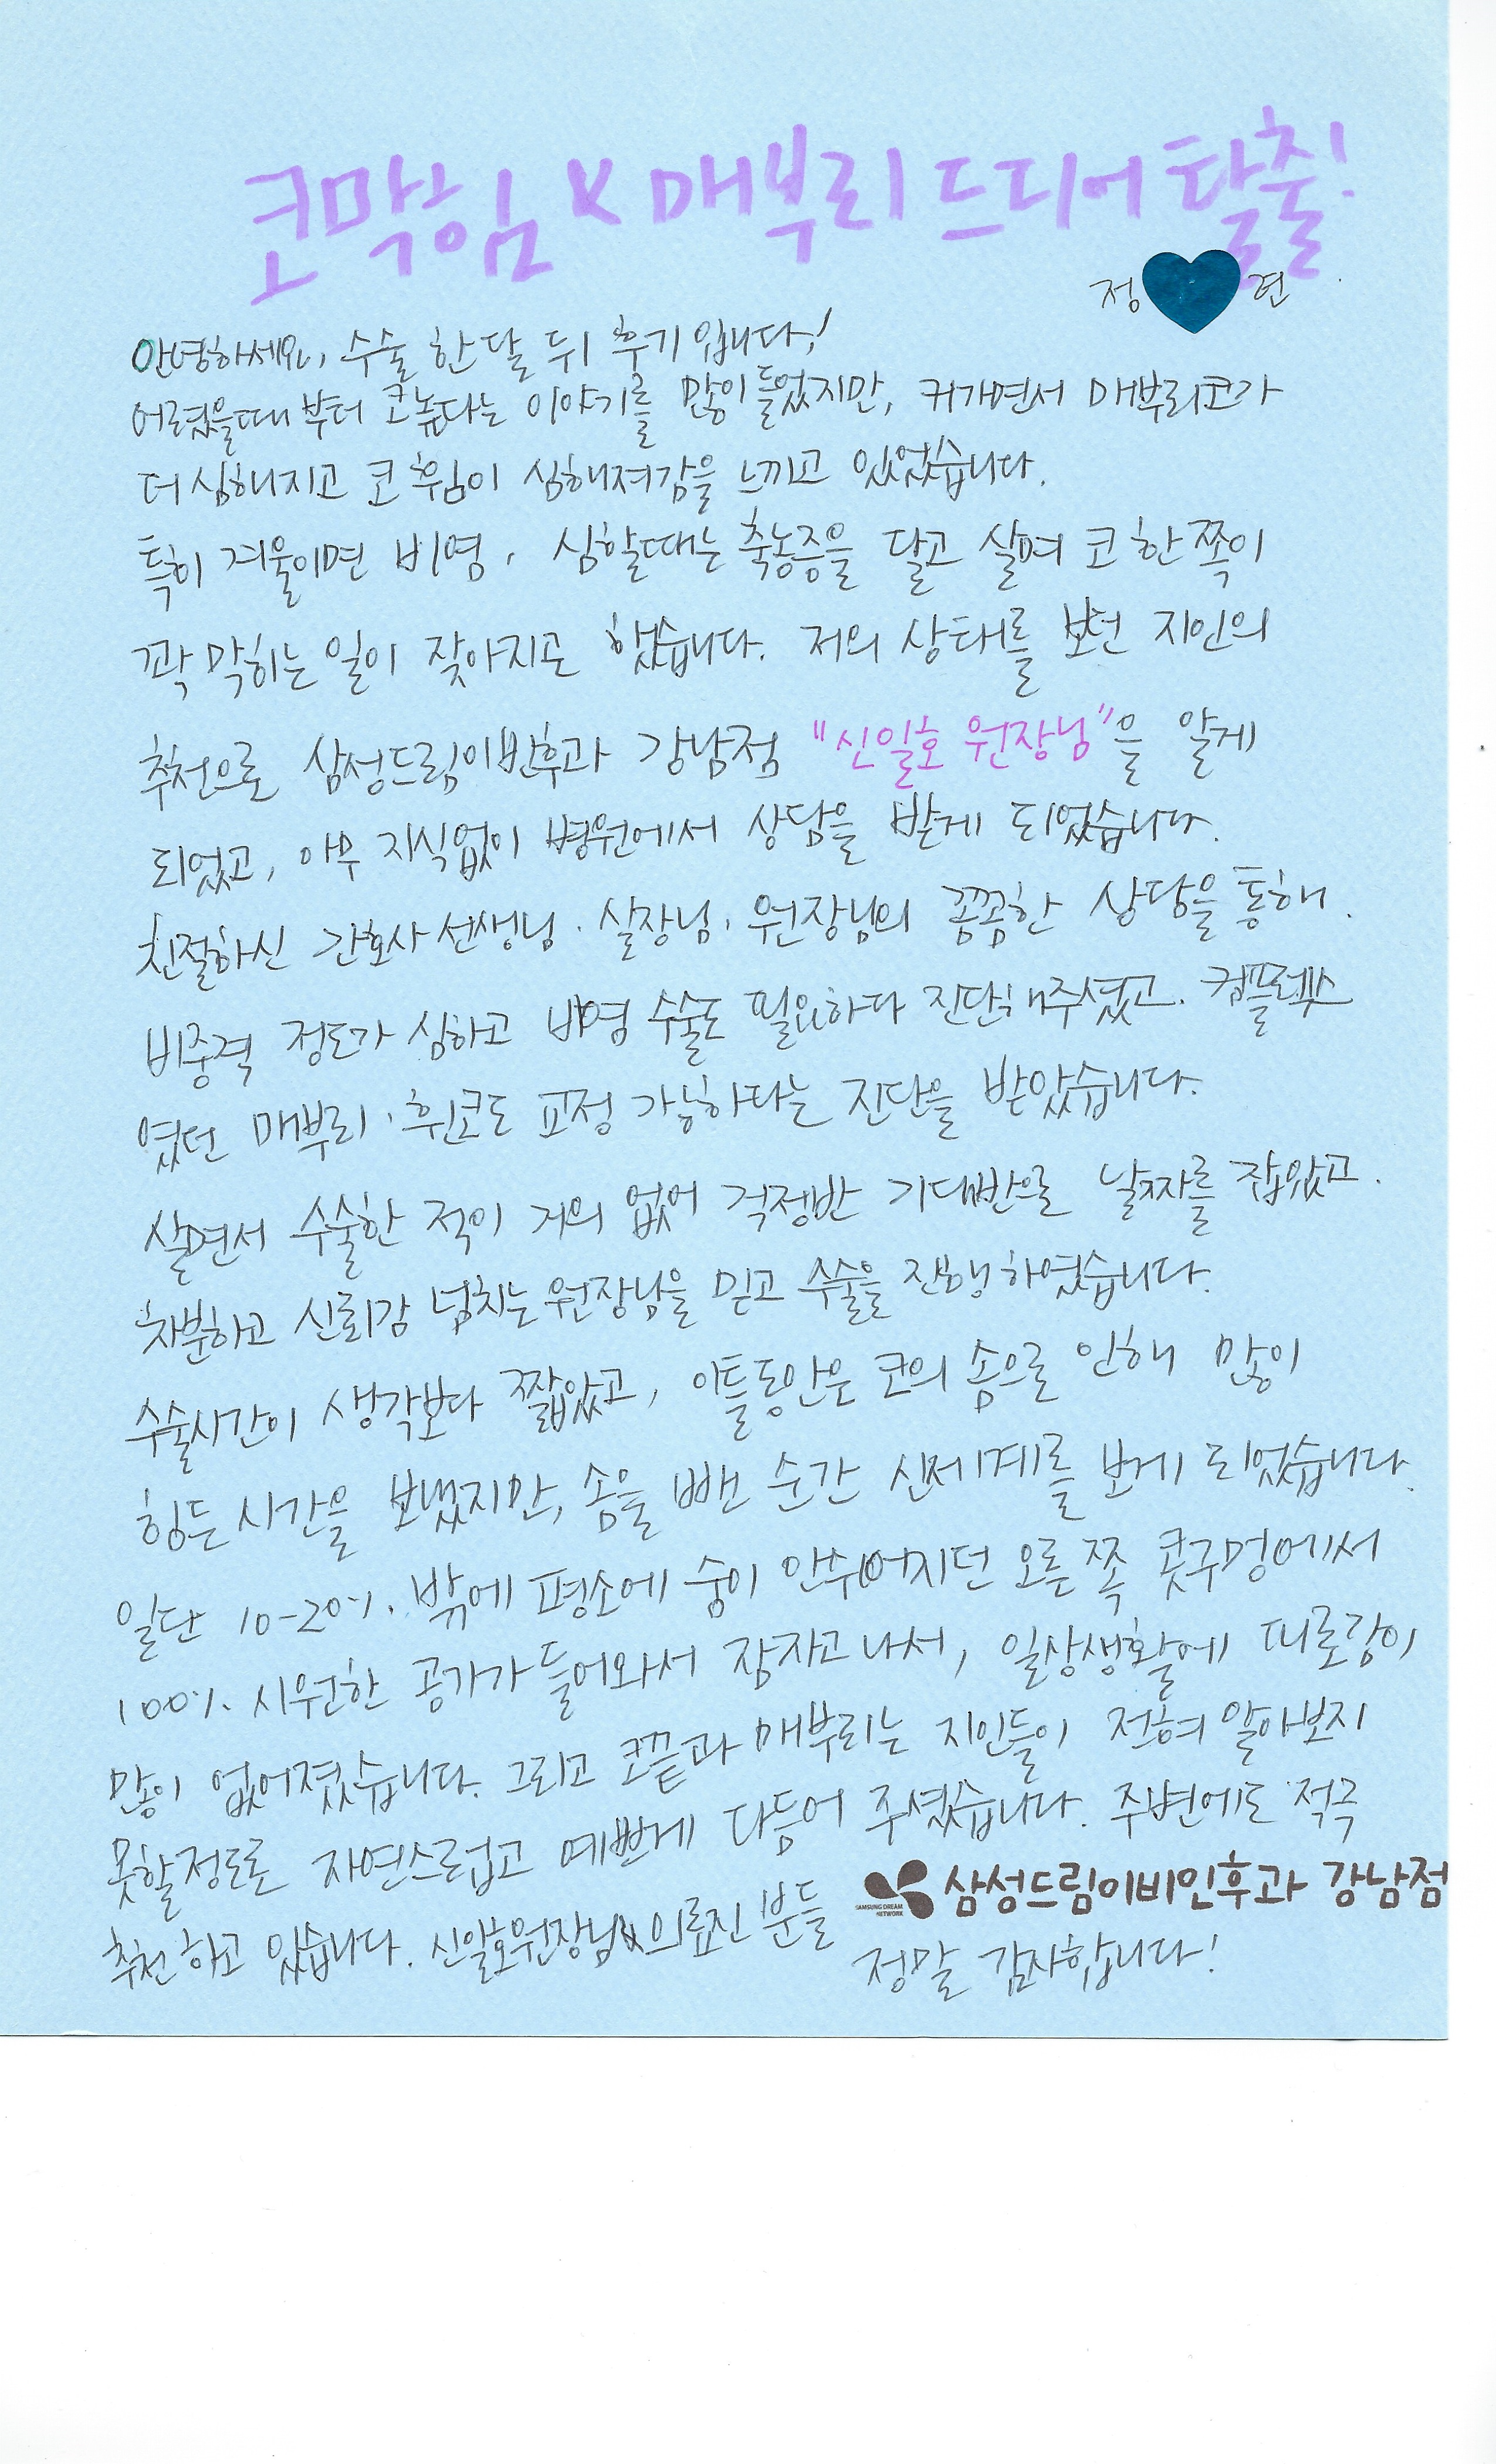 코막힘 & 매부리 드디어 탈출!
정 현
안녕하세요, 수술 한달 뒤 후기입니다!
어렸을때부터 코높다는 이야기를 많이 들었지만, 커가면서 매부리코가
더 심해지고 코 휨이 심해져감을 느끼고 있었습니다.
특히 겨울이면 비염, 심할때는 축농증을 달고 살며 코 한쪽이
꽉 막히는 일이 잦아지곤 했습니다. 저의 상태를 보던 지인의
추천으로 삼성드림이빈후과 강남점 "신일호 원장님"을 알게
되었고, 아무 지식없이 병원에서 상담을 받게 되었습니다.
친절하신 간호사 선생님, 실장님, 원장님의 꼼꼼한 상담을 통해,
비중격 정도가 심하고 비염 수술도 필요하다 진단해주셨고, 컴플렉스
였던 매부리, 휜코도 교정 가능하다는 진단을 받았습니다.
살면서 수술한 적이 거의 없어 걱정반 기대반으로 날짜를 잡았고,
차분하고 신뢰감 넘치는 원장님을 믿고 수술을 진행하였습니다.
수술시간이 생각보다 짧았고, 이틀동안은 코의 솜으로 인해 많이
힘든 시간을 보냈지만, 솜을 뺀 순간 신세계를 보게 되었습니다.
일단 10-20%. 밖에 평소에 숨이 안쉬어지던 오른쪽 콧구멍에서
100%. 시원한 공기가 들어와서 잠자고 나서, 일상생활에 피로감이
많이 없어졌습니다. 그리고 코끝과 매부리는 지인들이 전혀 알아보지
못할정도로 자연스럽고 예쁘게 다듬어 주셨습니다. 주변에도 적극
추천하고 있습니다. 신일호원장님&의료진 분들
SAMSUNG DREAM NETWORK 삼성드림이비인후과 강남점
정말 감사합니다!